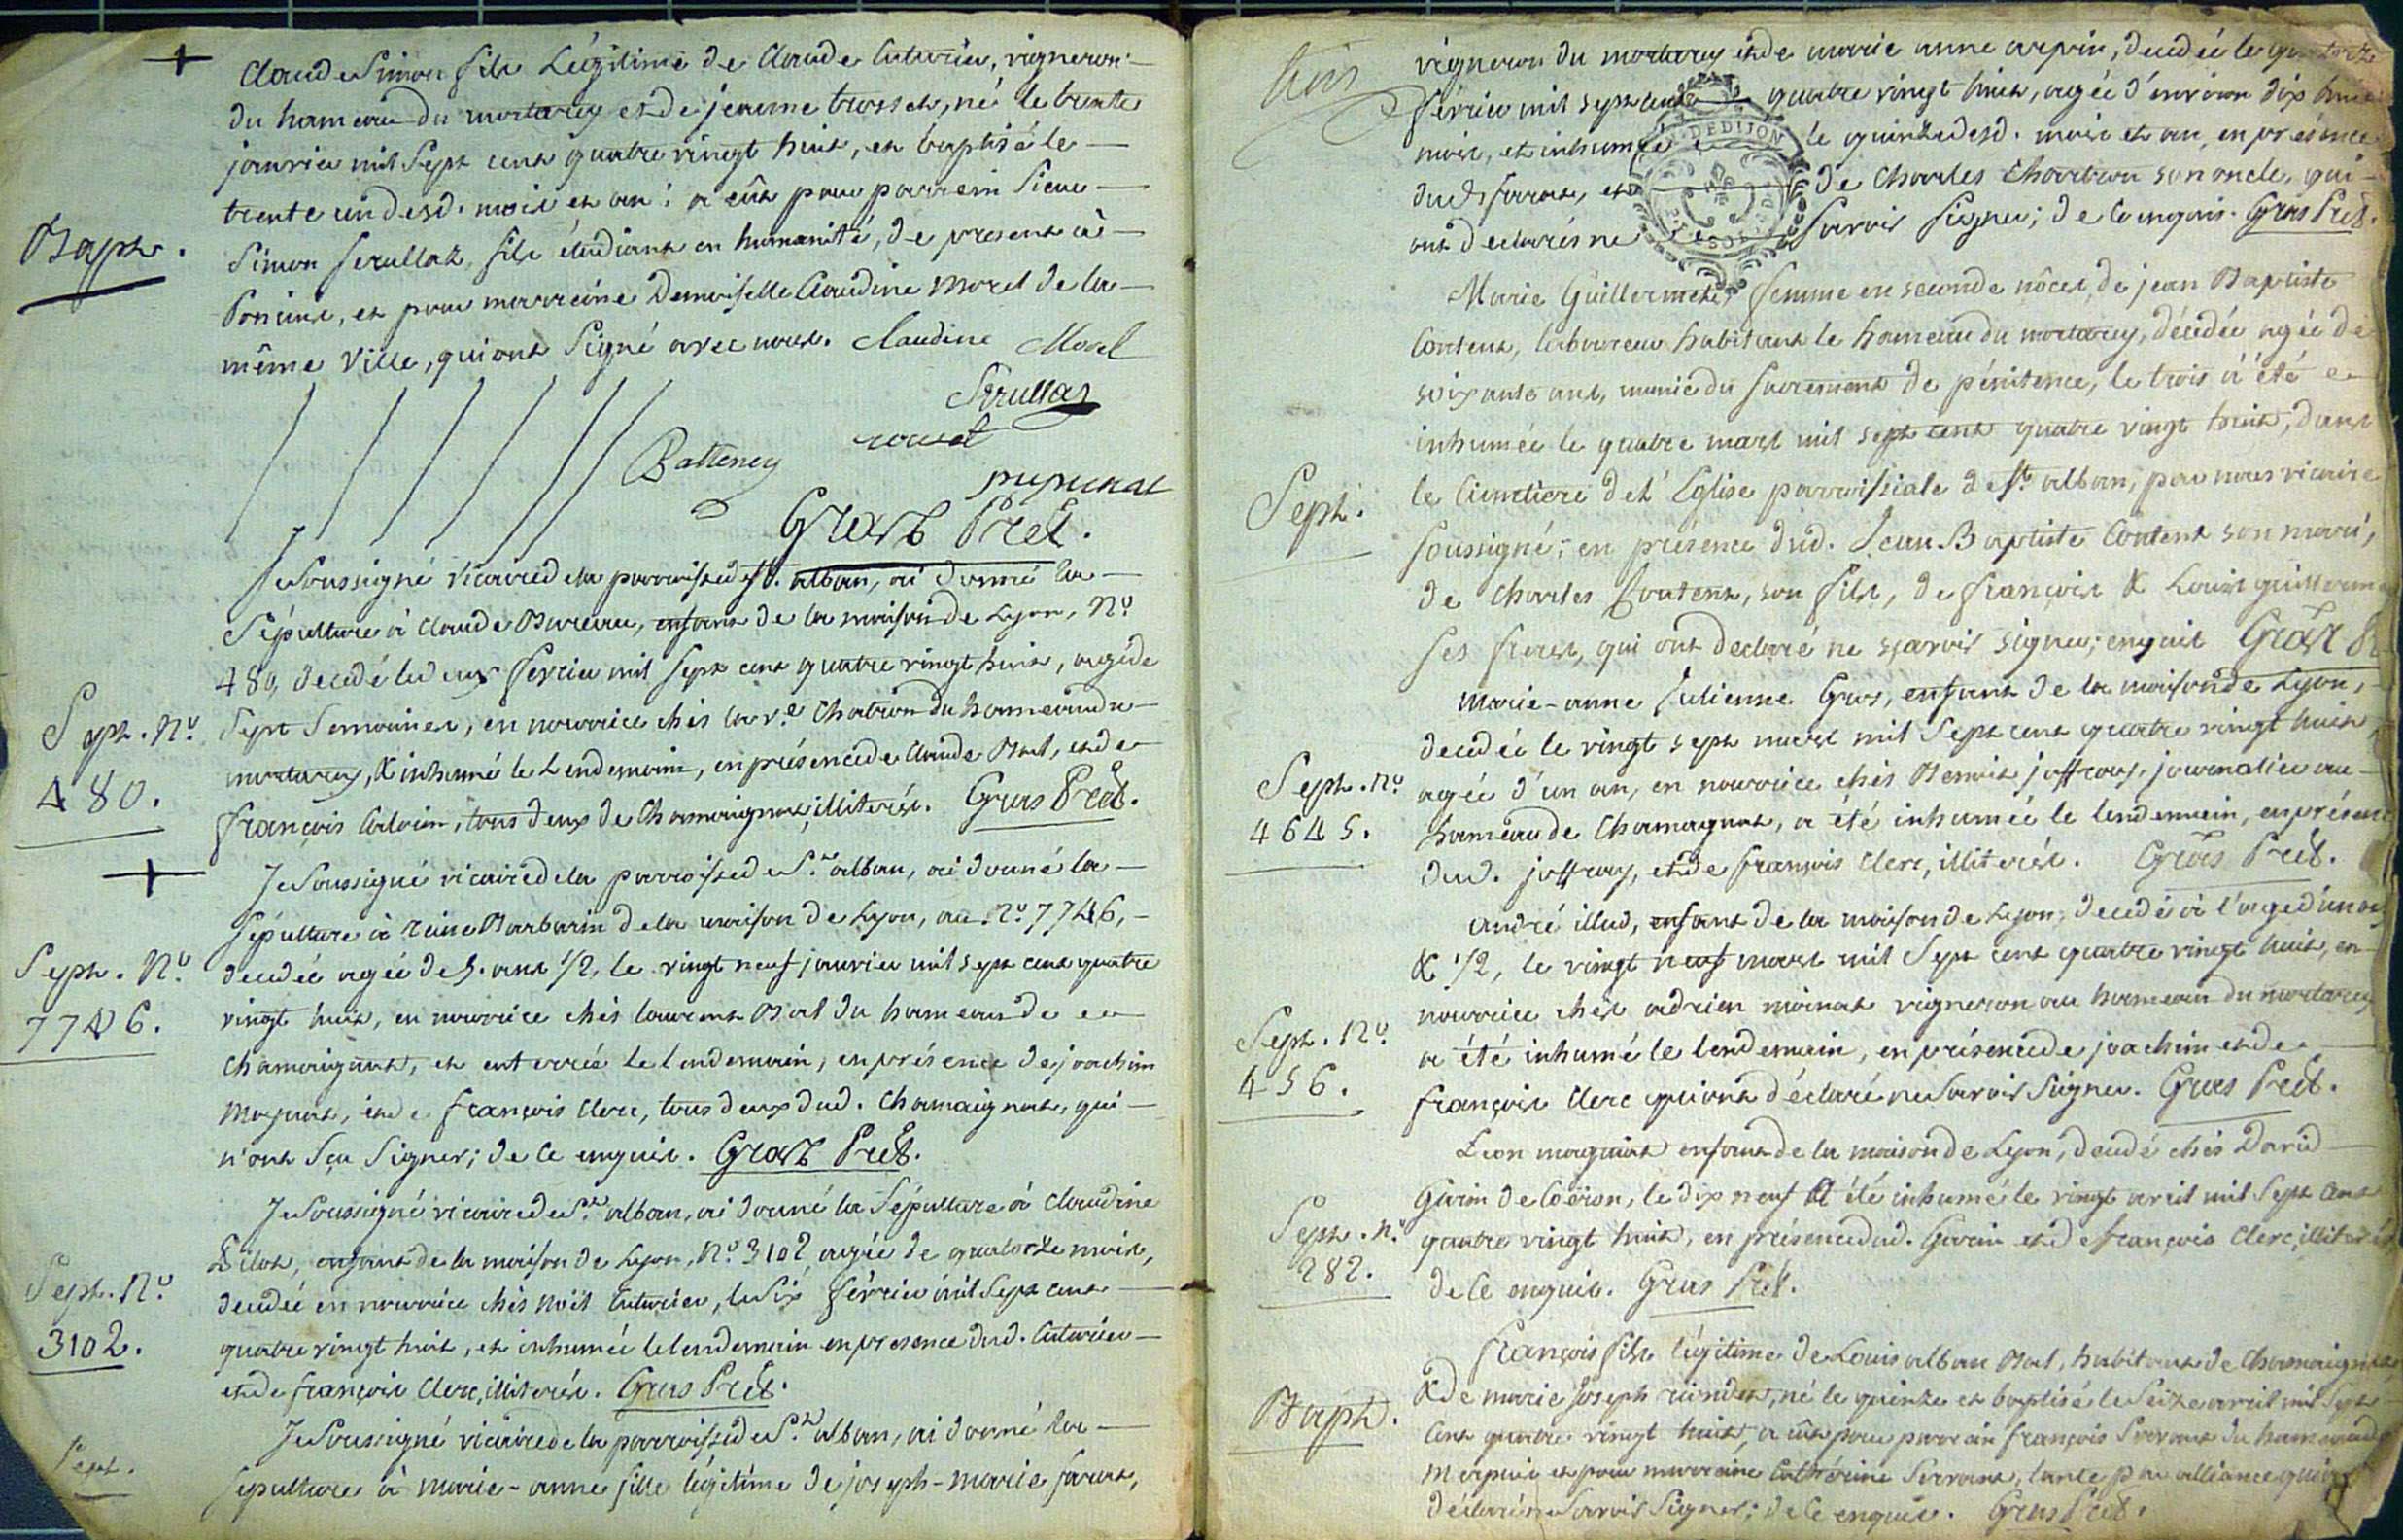 Claude Simon fils Légitime de Claude Cuturier, vigneron
du hameau du mortarey et de jeanne trosset, né le trente
janvier mil Sept cent quatre vingt huit, et baptisé le
trente un desd. mois et an; a eût pour parrein Sieur
Bapt.
Simon Serullaz, fils étudiant en humanité, de present à
Poncins, et pour marreine Demoiselle Claudine Morel de la
même Ville, qui ont Signé avec nous. Claudine Morel
Serullaz
Batteney
Gras Pret.
Je Soussigné Vicaire de la parroisse de St. alban, ai donné la
Sépulture à Claude Bureau, enfant de la maison de Lyon, No.
480, decedé le deux fevrier mil Sept cent quatre vingt huit, agé de
Sept. No.
480.
Sept Semaines, en nourrice chés la ve. Chatron du hameau du
mortarey, & inhumé le Lendemain, en présence de Claude Bal, et de
françois , tous deux de Chamaignat, illiterés. Gras Pret.
Je Soussigné vicaire de la parroisse de St. alban, ai donné la
Sépulture à reine Barbarin de la maison de Lyon, au No. 7746,
Sept. No.
7746.
decedée agée de 5. ans 1/2, le vingt neuf janvier mil sept cent quatre
vingt huit, en nourrice chés laurent Bal du hameau de
Chamaignat, et enterrée le lendemain, en présence de joachim
Moynat, et de françois Clerc, tous deux dud. Chamaignat, qui
n'ont Sçu Signer; de Ce enquis. Gras Pret.
Je Soussigné vicaire de St. alban, ai donné la Sépulture à Claudine
, enfant de la maison de Lyon, No. 3102, agée de quatorze mois,
Sept. No.
3102.
decedée en nourrice chés Noël Cuturier, le Six fevrier mil Sept cent
quatre vingt huit, et inhumée le lendemain en presence dud. Cuturier
et de françois Clerc, illiterés. Gras Pret.
Je Soussigné vicaire de la parroisse de St. alban, ai donné la
Sept.
Sepulture à marie-anne fille légitime de joseph-marie farat,
vigneron du mortarey et de marie anne arpin, decedée le quatorze
fevrier mil sept cent quatre vingt huit, agée d'environ dix huit
mois, et inhumée le quinze desd. mois et an, en présence
dud. farat, et de Charles Chartron son oncle, qui
ont declarés ne Savoir Signer; de Ce enquis. Gras Pret.
GEN. DE DIJON
Marie Guillermet, femme en seconde nôces, de jean Baptiste
Content, laboureur habitant le hameau du mortarey, décedée agée de
soixante ans, munie du Sacrement de pénitence, le trois à été
inhumée le quatre mars mil sept cent quatre vingt huit, dans
Sept.
le Cimetiere de l'Eglise parroissiale de St. alban, par nous vicaire
soussigné; en présence dud. Jean Baptiste Content son mari,
de Charles Content, son fils, de françois & Louis guillerme
ses freres, qui ont declaré ne sçavoir signer; enquis Gras Pr
Marie-anne Julienne Gros, enfant de la maison de Lyon,
decedée le vingt sept mars mil Sept cent quatre vingt huit,
Sept. No.
4645.
agée d'un an, en nourrice chés Benoit joffray, journalier au
hameau de Chamagnat, a été inhumée le lendemain, en présence
dud. joffray, et de françois Clerc, illiterés. Gras Pret.
André illud, enfant de la maison de Lyon, decedé à l'age d'un an
& 1/2, le vingt neuf mars mil Sept cent quatre vingt huit, en
nourrice chés adrien moinat vigneron au hameau du mortarey,
Sept. No.
456.
a été inhumé le lendemain, en présence de joachim et de
françois Clerc qui ont déclaré ne Savoir Signer. Gras Pret.
Léon magniat enfant de la maison de Lyon, decedé chés David
Guin de Coëron, le dix neuf A été inhumé le vingt avril mil Sept cent
Sept. n.
282.
quatre vingt huit, en présence dud. Guin et de françois Clerc, illiterés
de Ce enquis. Gras Pret.
François fils légitime de Louis alban Bal, habitant de Chamaignat
Bapt.
& de marie Joseph , né le quinze et baptisé le Seize avril mil Sept
Cent quatre vingt huit, a eût pour parrain françois Servant du hameau de
et pour marreine Cathérine Servant, tante par alliance qui
déclaré ne Savoir Signer; de Ce enquis. Gras Pret.